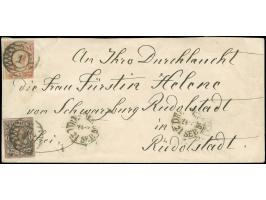 An Ihro Durchlaucht
die Frau Fürstin Helene
von Schwarzburg Rudolstadt
in
frei. Rudolstadt.